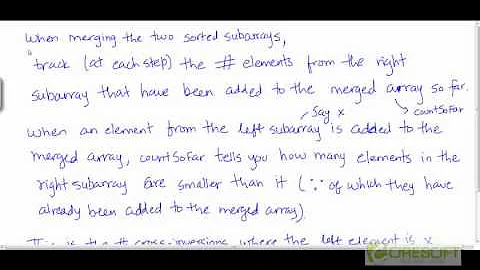 When merging the two sorted subarrays,
track (at each step) the # elements from the right
subarray that have been added to the merged array so far.
Say x
countSoFar
When an element from the left subarray is added to the
merged array, countSoFar tells you how many elements in the
right subarray are smaller than it (∵ of which they have
already been added to the merged array).
is the # where the left element is x
CORESOFT